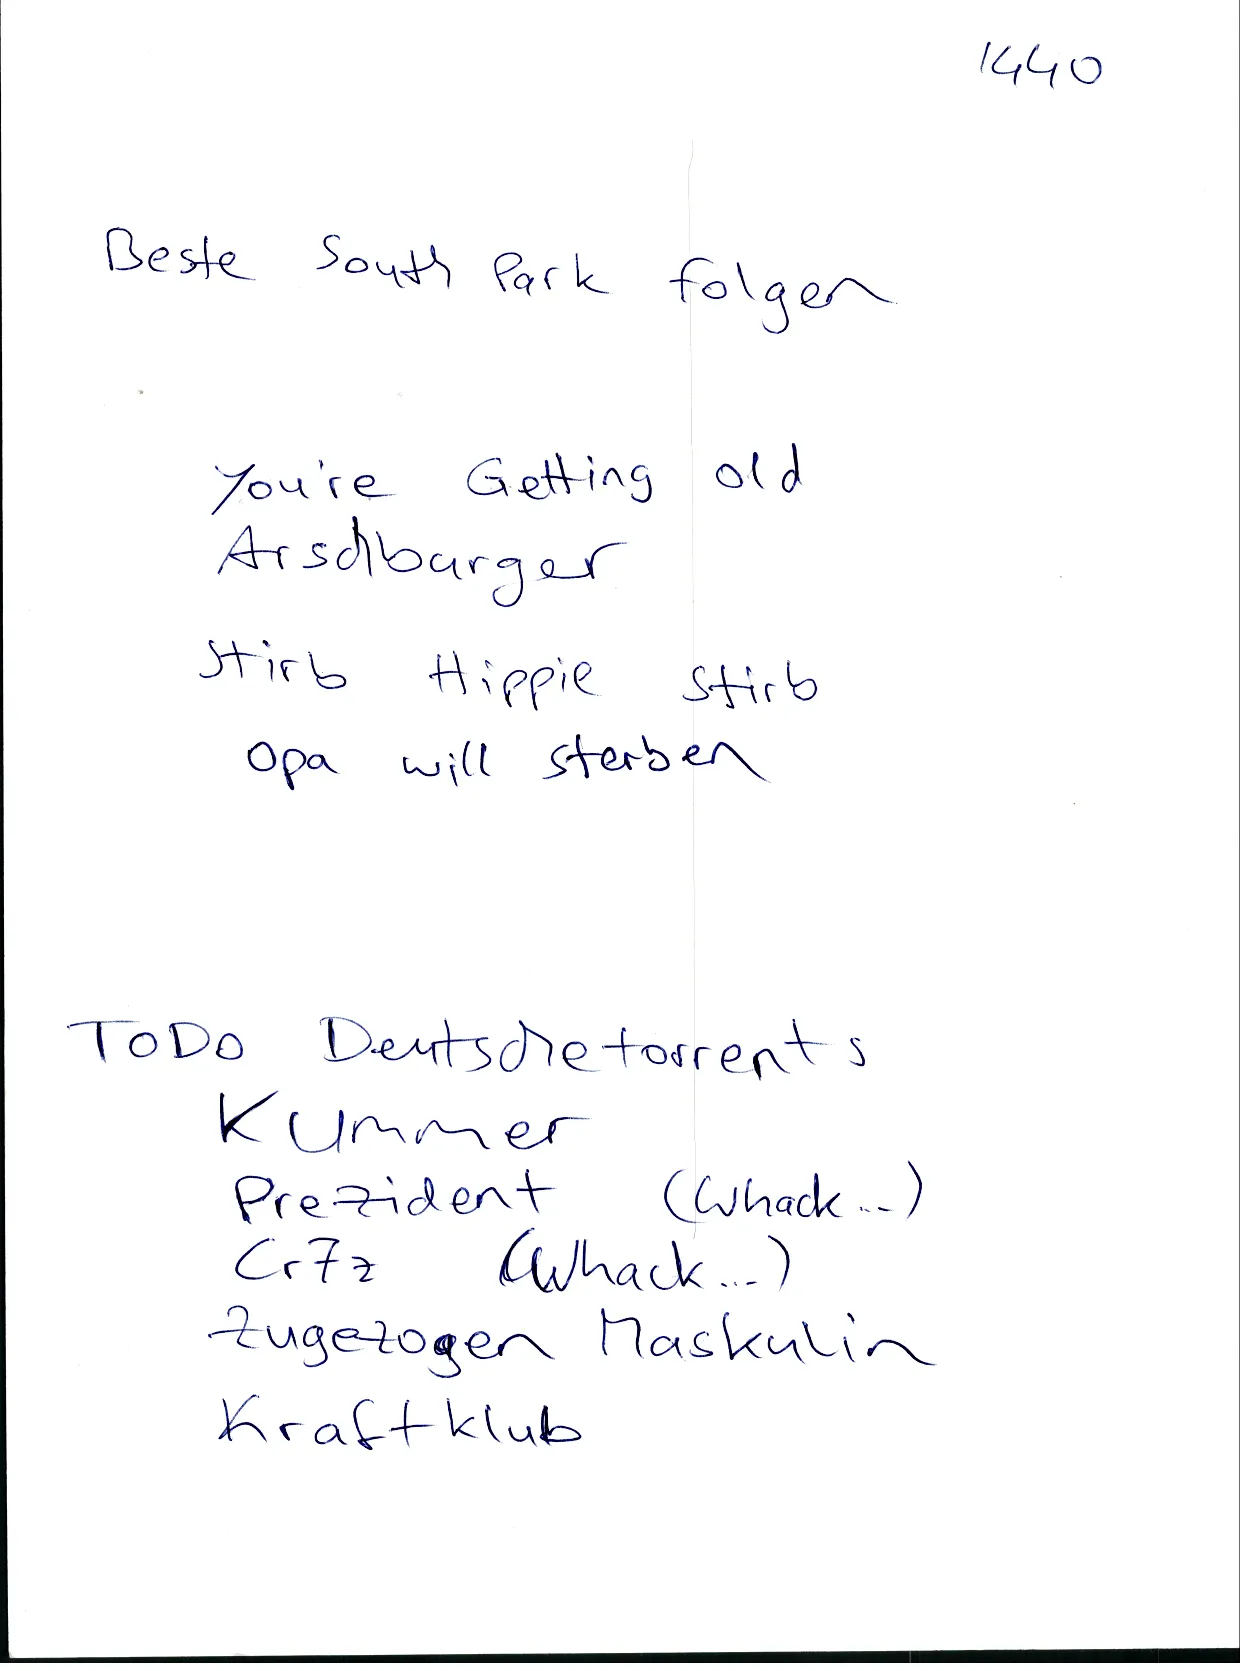 1440
Beste South Park folgen
You're Getting old
Arschburger
Stirb Hippie stirb
Opa will sterben
ToDo Deutschetorrents
Kummer
Prezident (Whack...)
Cr7z (Whack...)
Zugezogen Maskulin
Kraftklub